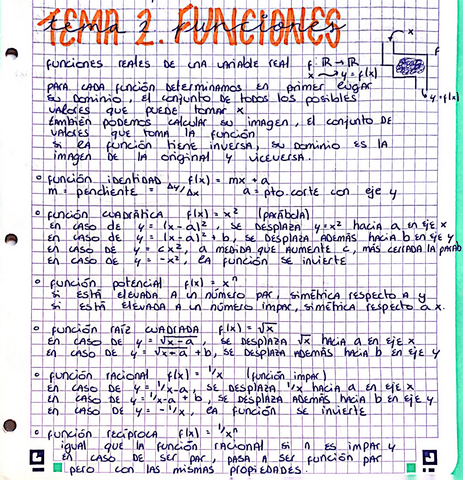 TEMA 2. FUNCIONES
tema 2 funciones
funciones reales de una variable real f: ℝ → ℝ
x → y = f(x)
x
f
y = f(x)
para cada función determinamos en primer lugar
su dominio, el conjunto de todos los posibles
valores que puede tomar x
también podemos calcular su imagen, el conjunto de
valores que toma la función
si la función tiene inversa, su dominio es la
imagen de la original y viceversa.
° función identidad f(x) = mx + a
m = pendiente = Δy/Δx a = pto. corte con eje y
° función cuadrática f(x) = x² (parábola)
en caso de y = (x-a)², se desplaza y=x² hacia a en eje x
en caso de y = (x-a)² + b, se desplaza además hacia b en eje y
en caso de y = cx², a medida que aumente c, más cerrada la parab
en caso de y = -x², la función se invierte
° función potencial f(x) = xⁿ
si está elevada a un número par, simétrica respecto a y
si está elevada a un número impar, simétrica respecto a x.
° función raíz cuadrada f(x) = √x
en caso de y = √x-a, se desplaza √x hacia a en eje x
en caso de y = √x-a + b, se desplaza además hacia b en eje y
° función racional f(x) = 1/x (función impar)
en caso de y = 1/x-a, se desplaza 1/x hacia a en eje x
en caso de y = 1/x-a + b, se desplaza además hacia b en eje y
en caso de y = -1/x, la función se invierte
° función recíproca f(x) = 1/xⁿ
igual que la función racional si n es impar y
en caso de ser par, pasa a ser función par
pero con las mismas propiedades.